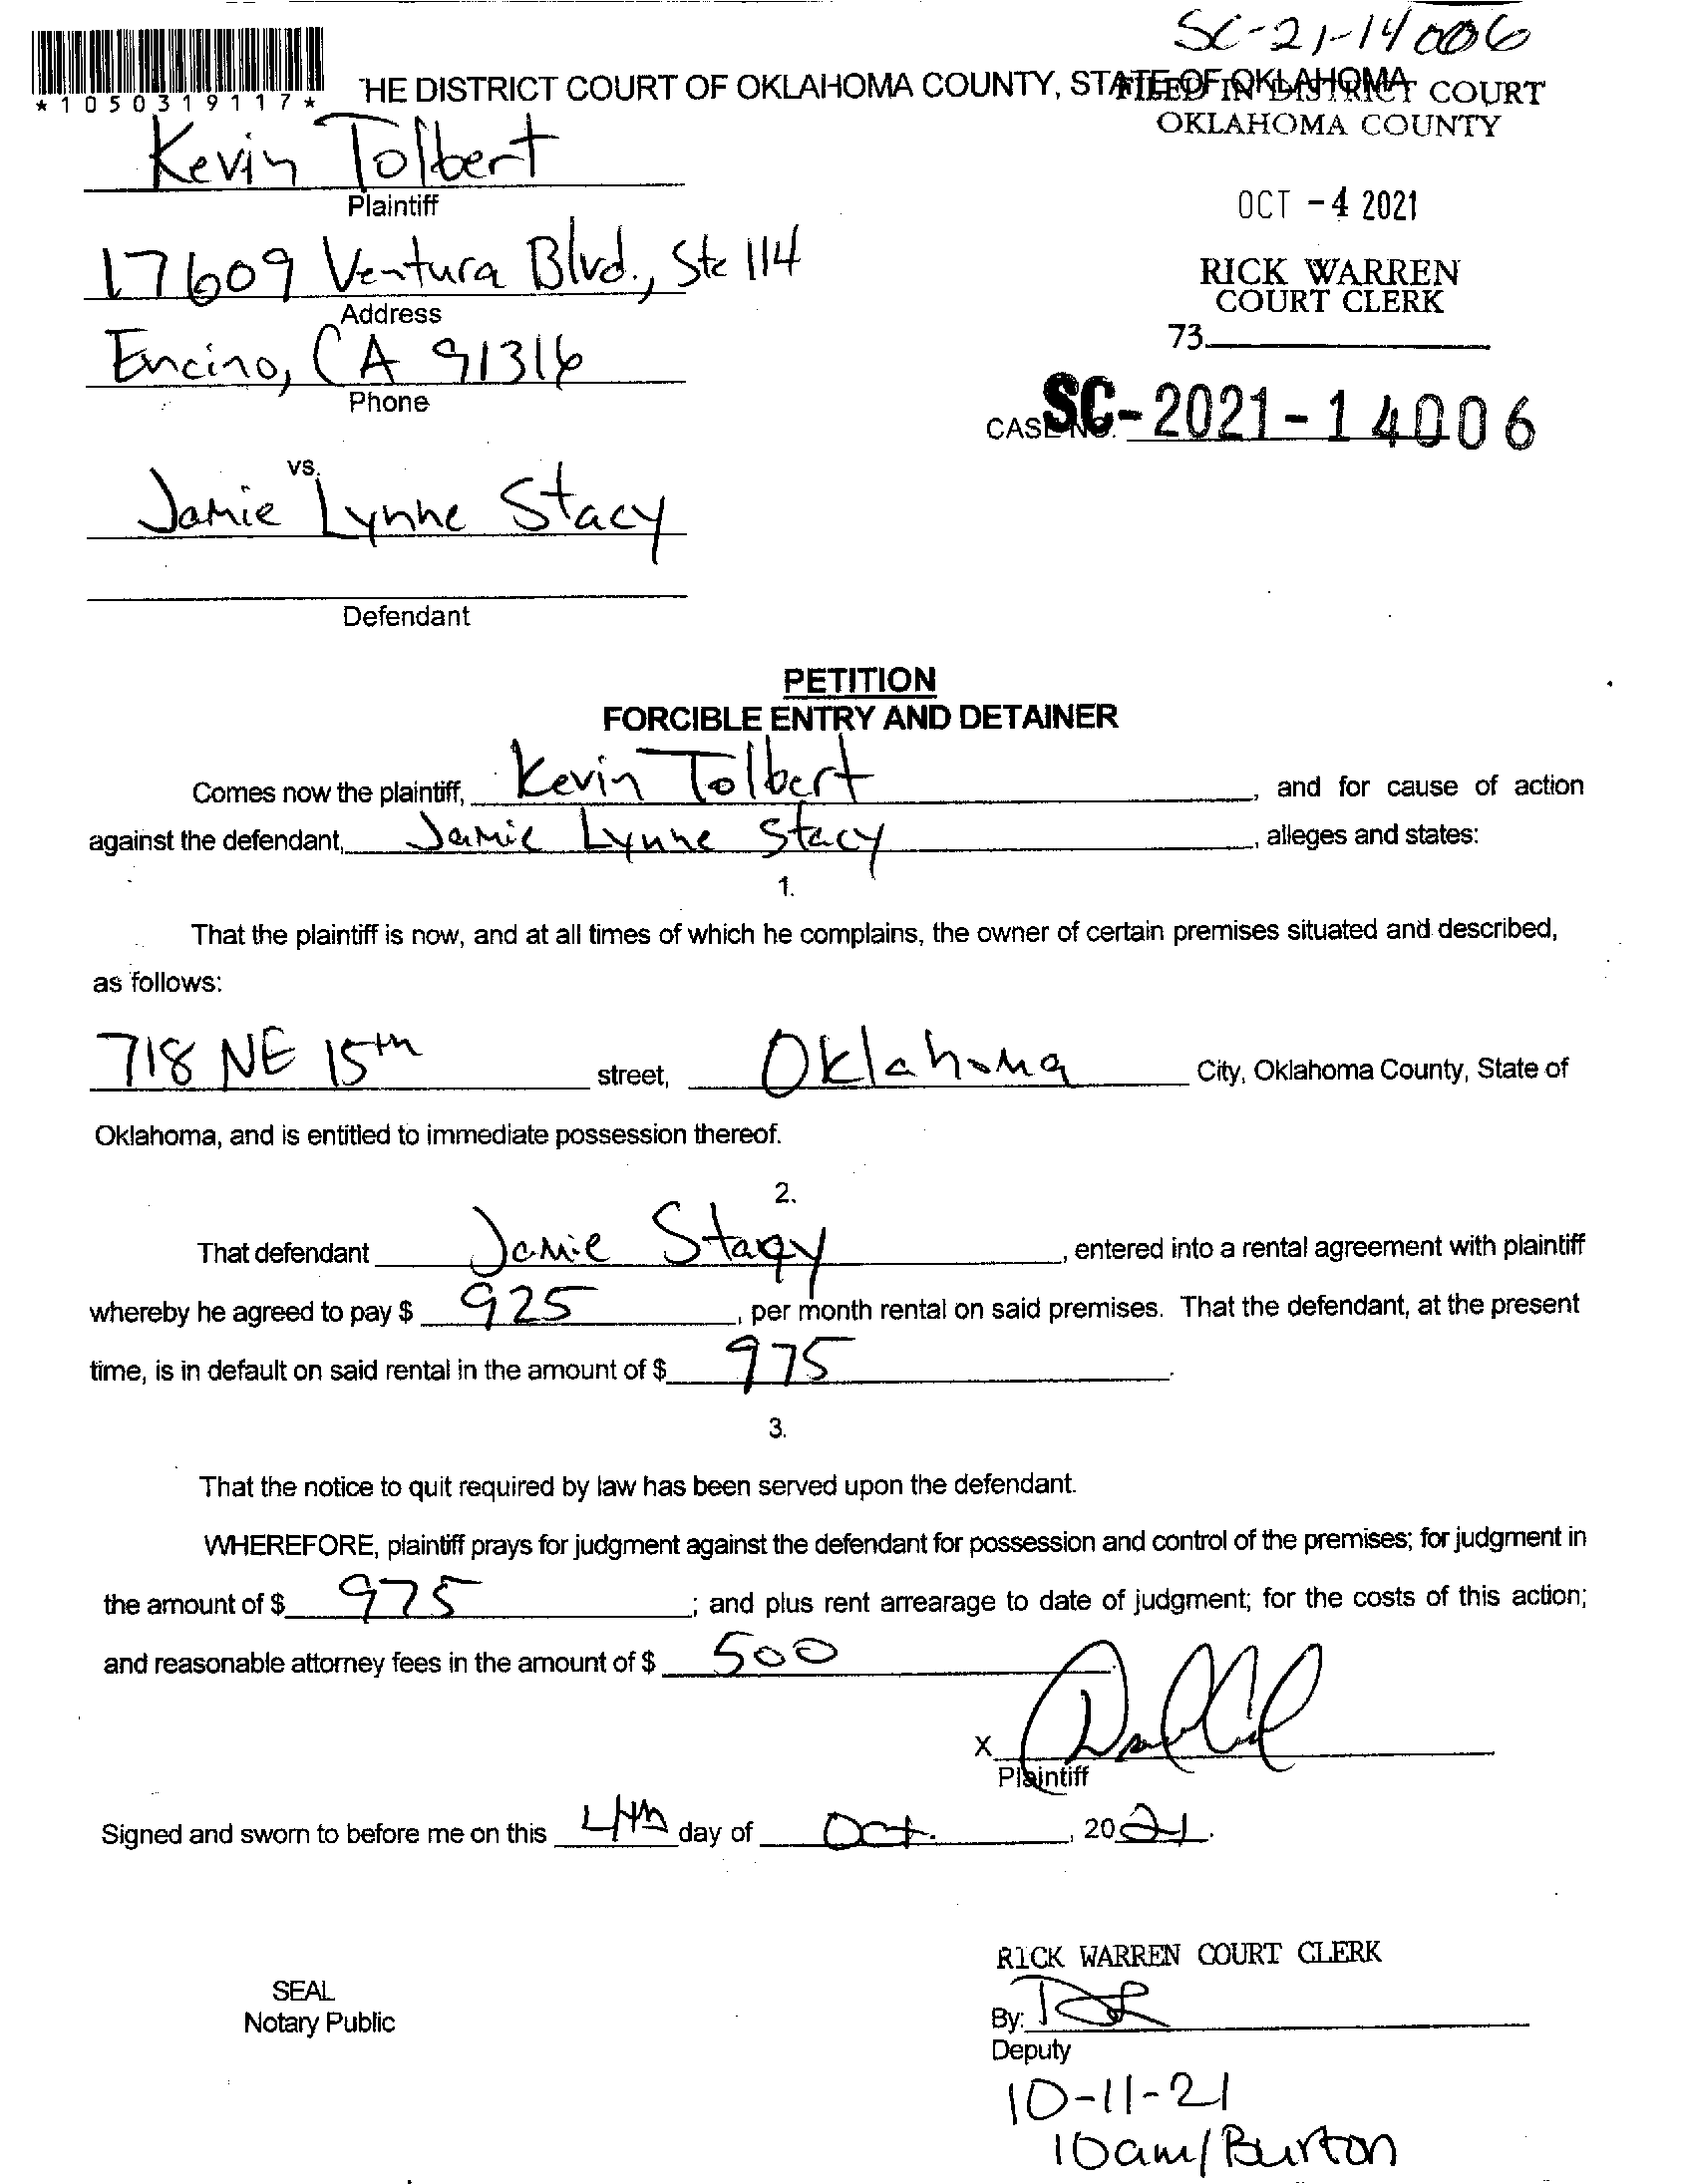 SC-21-14006
*1050319117*
HE DISTRICT COURT OF OKLAHOMA COUNTY, STATE OF OKLAHOMA
FILED IN DISTRICT COURT
OKLAHOMA COUNTY
Kevin Tolbert
Plaintiff
OCT -4 2021
17609 Ventura Blvd., Ste 114
Address
RICK WARREN
COURT CLERK
73
Encino, CA 91316
Phone
CASE NO. SC-2021-14006
vs.
Jamie Lynne Stacy
Defendant
PETITION
FORCIBLE ENTRY AND DETAINER
Comes now the plaintiff, Kevin Tolbert, and for cause of action
against the defendant, Jamie Lynne Stacy, alleges and states:
1.
That the plaintiff is now, and at all times of which he complains, the owner of certain premises situated and described,
as follows:
718 NE 15th street, Oklahoma City, Oklahoma County, State of
Oklahoma, and is entitled to immediate possession thereof.
2.
That defendant Jamie Stacy, entered into a rental agreement with plaintiff
whereby he agreed to pay $ 925, per month rental on said premises. That the defendant, at the present
time, is in default on said rental in the amount of $ 975.
3.
That the notice to quit required by law has been served upon the defendant.
WHEREFORE, plaintiff prays for judgment against the defendant for possession and control of the premises; for judgment in
the amount of $ 975; and plus rent arrearage to date of judgment; for the costs of this action;
and reasonable attorney fees in the amount of $ 500.
X
Plaintiff
Signed and sworn to before me on this 4th day of Oct., 2021.
RICK WARREN COURT CLERK
SEAL
Notary Public
By:
Deputy
10-11-21
10am/Burton